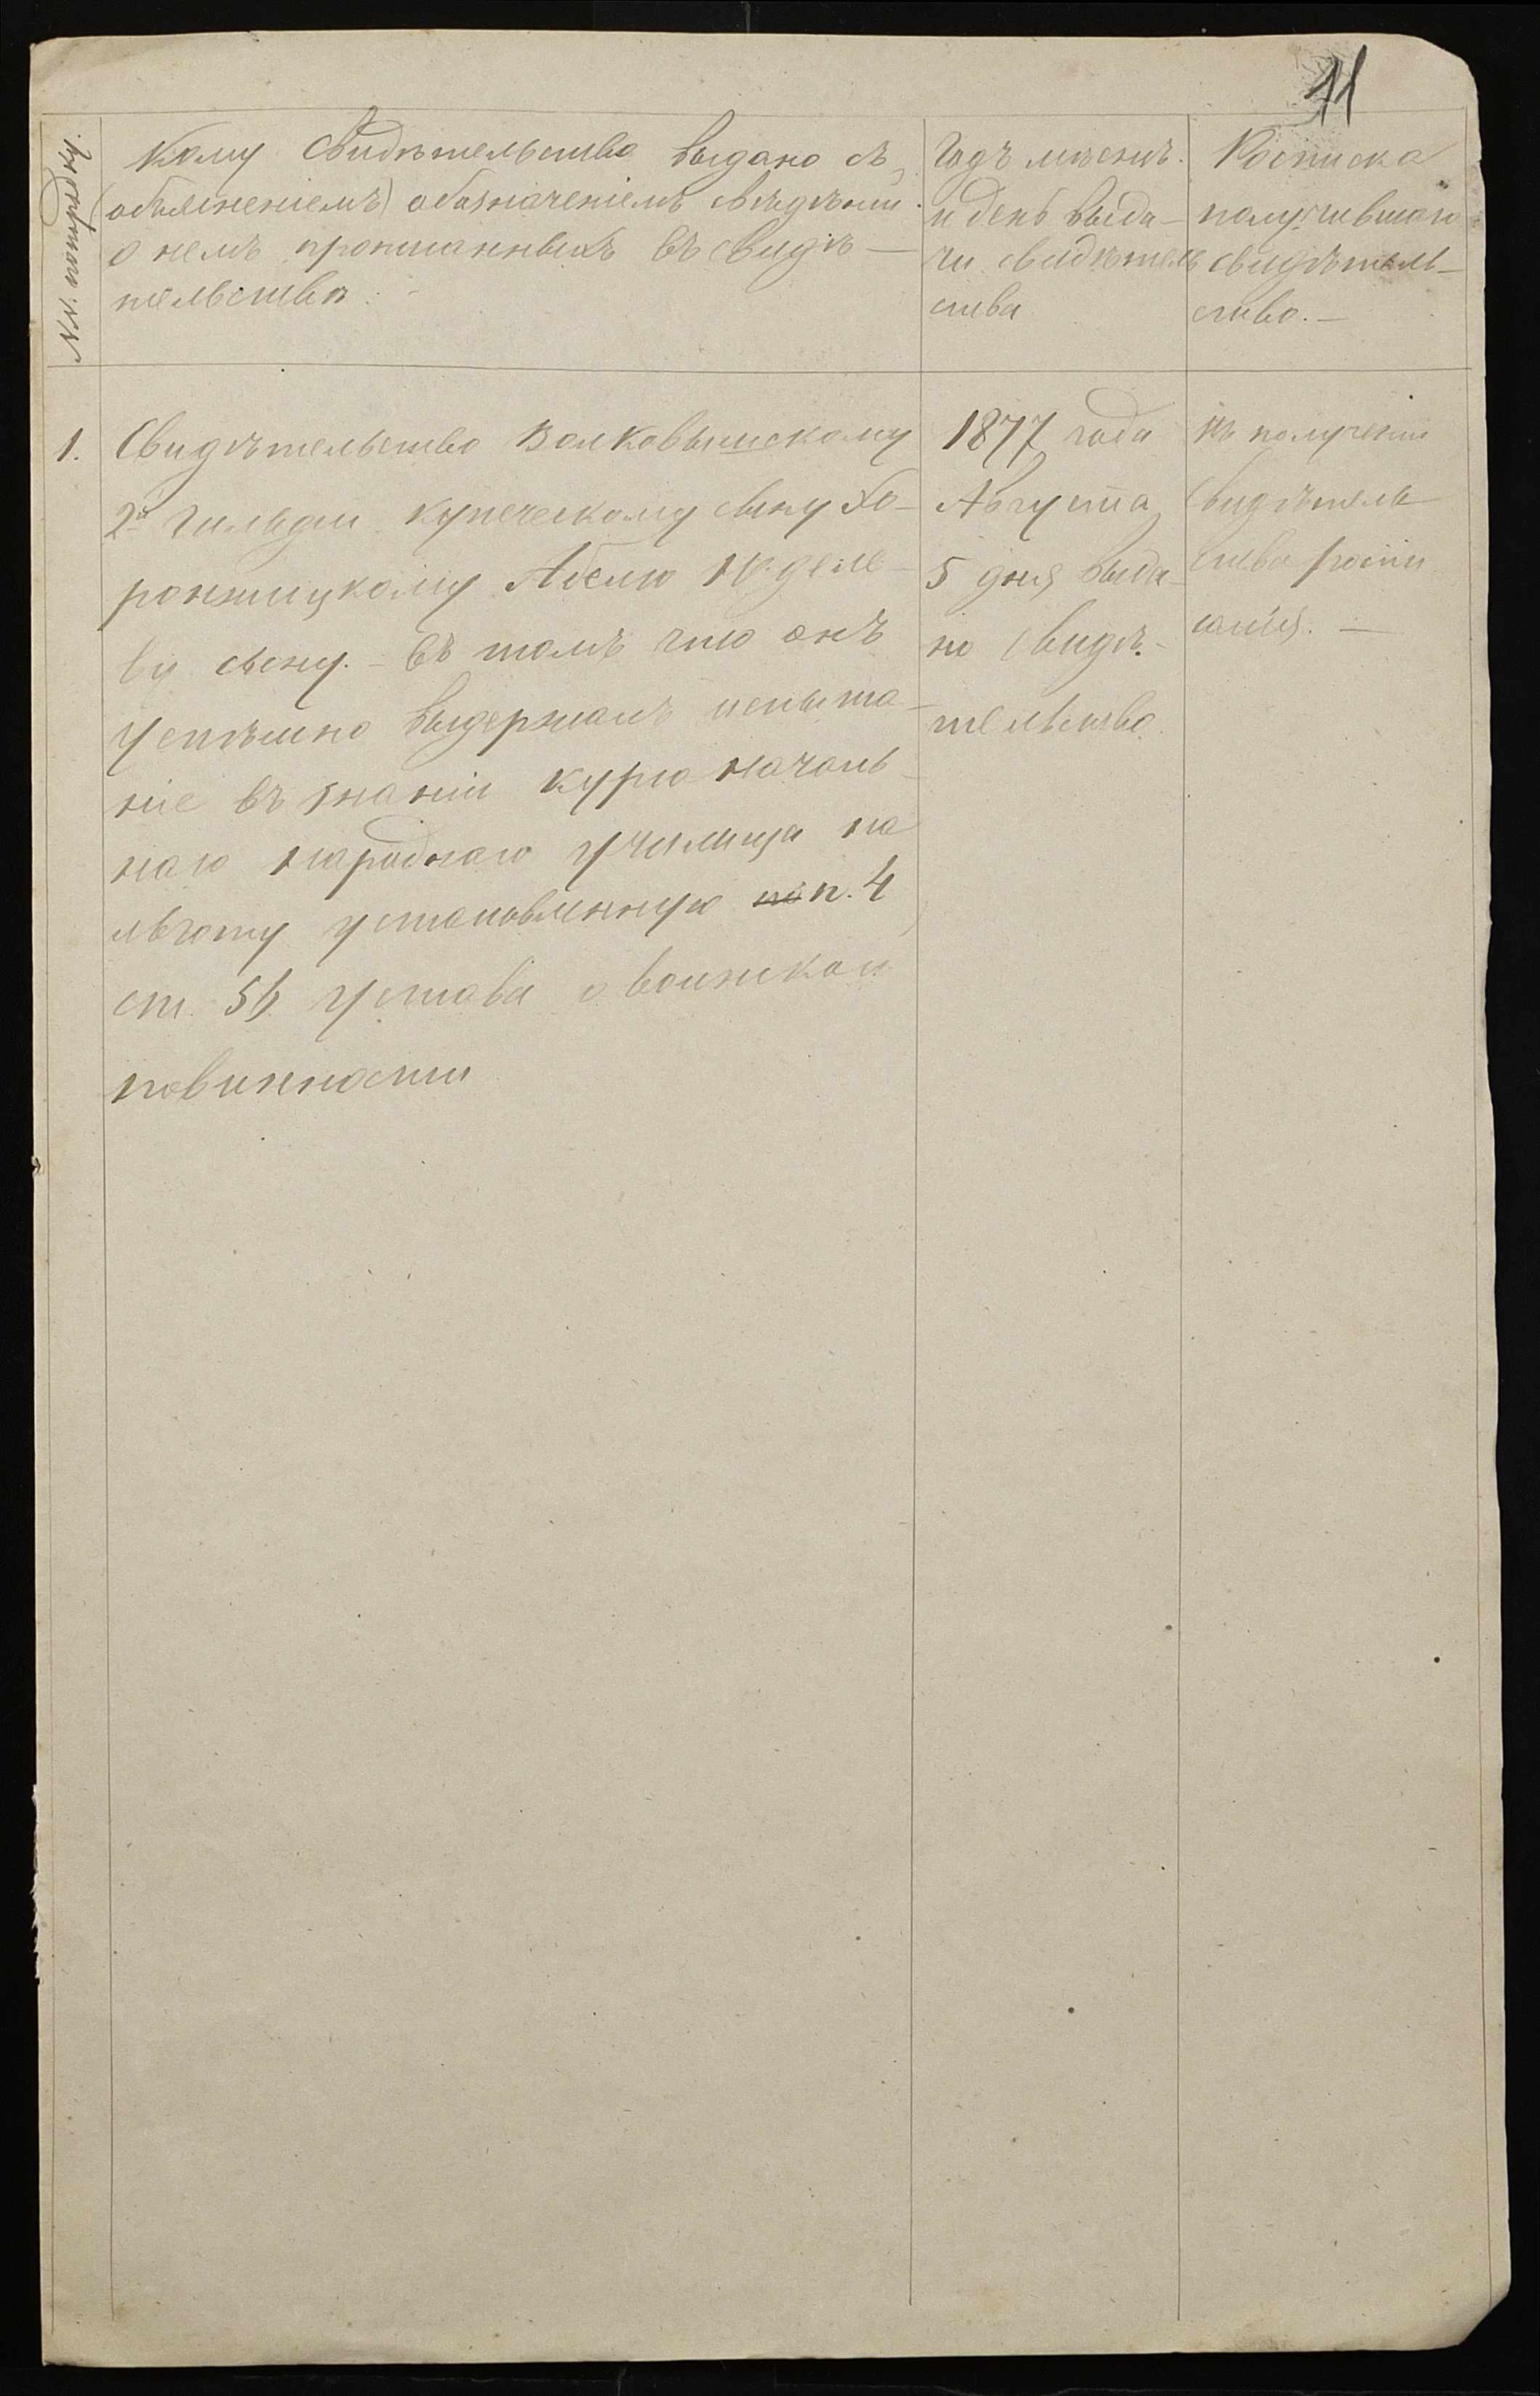 11
№№ по порядку.
Кому свидѣтельство выдано съ
(объясненіемъ) обозначеніемъ свѣдѣній
о немъ прописанныхъ въ свидѣ-
тельствѣ.
Годъ мѣсяцъ
и день выда-
чи свидѣтель
ства
Росписка
получившаго
свидѣтель-
ство. —
1.
Свидѣтельство Волковышскому
2й гильдіи купеческому сыну Хо-
ронжицкому Абелю
сыну. - въ томъ что онъ
Успѣшно выдержалъ испыта-
ніе въ знаніи курса началь-
наго народнаго училища на
льготу установленную по п. 4
ст. 56 устава о воинской
повинности
1877 года
Августа
5 дня выда-
но свидѣ-
тельство.
въ полученіи
свидѣтель
ства роспи